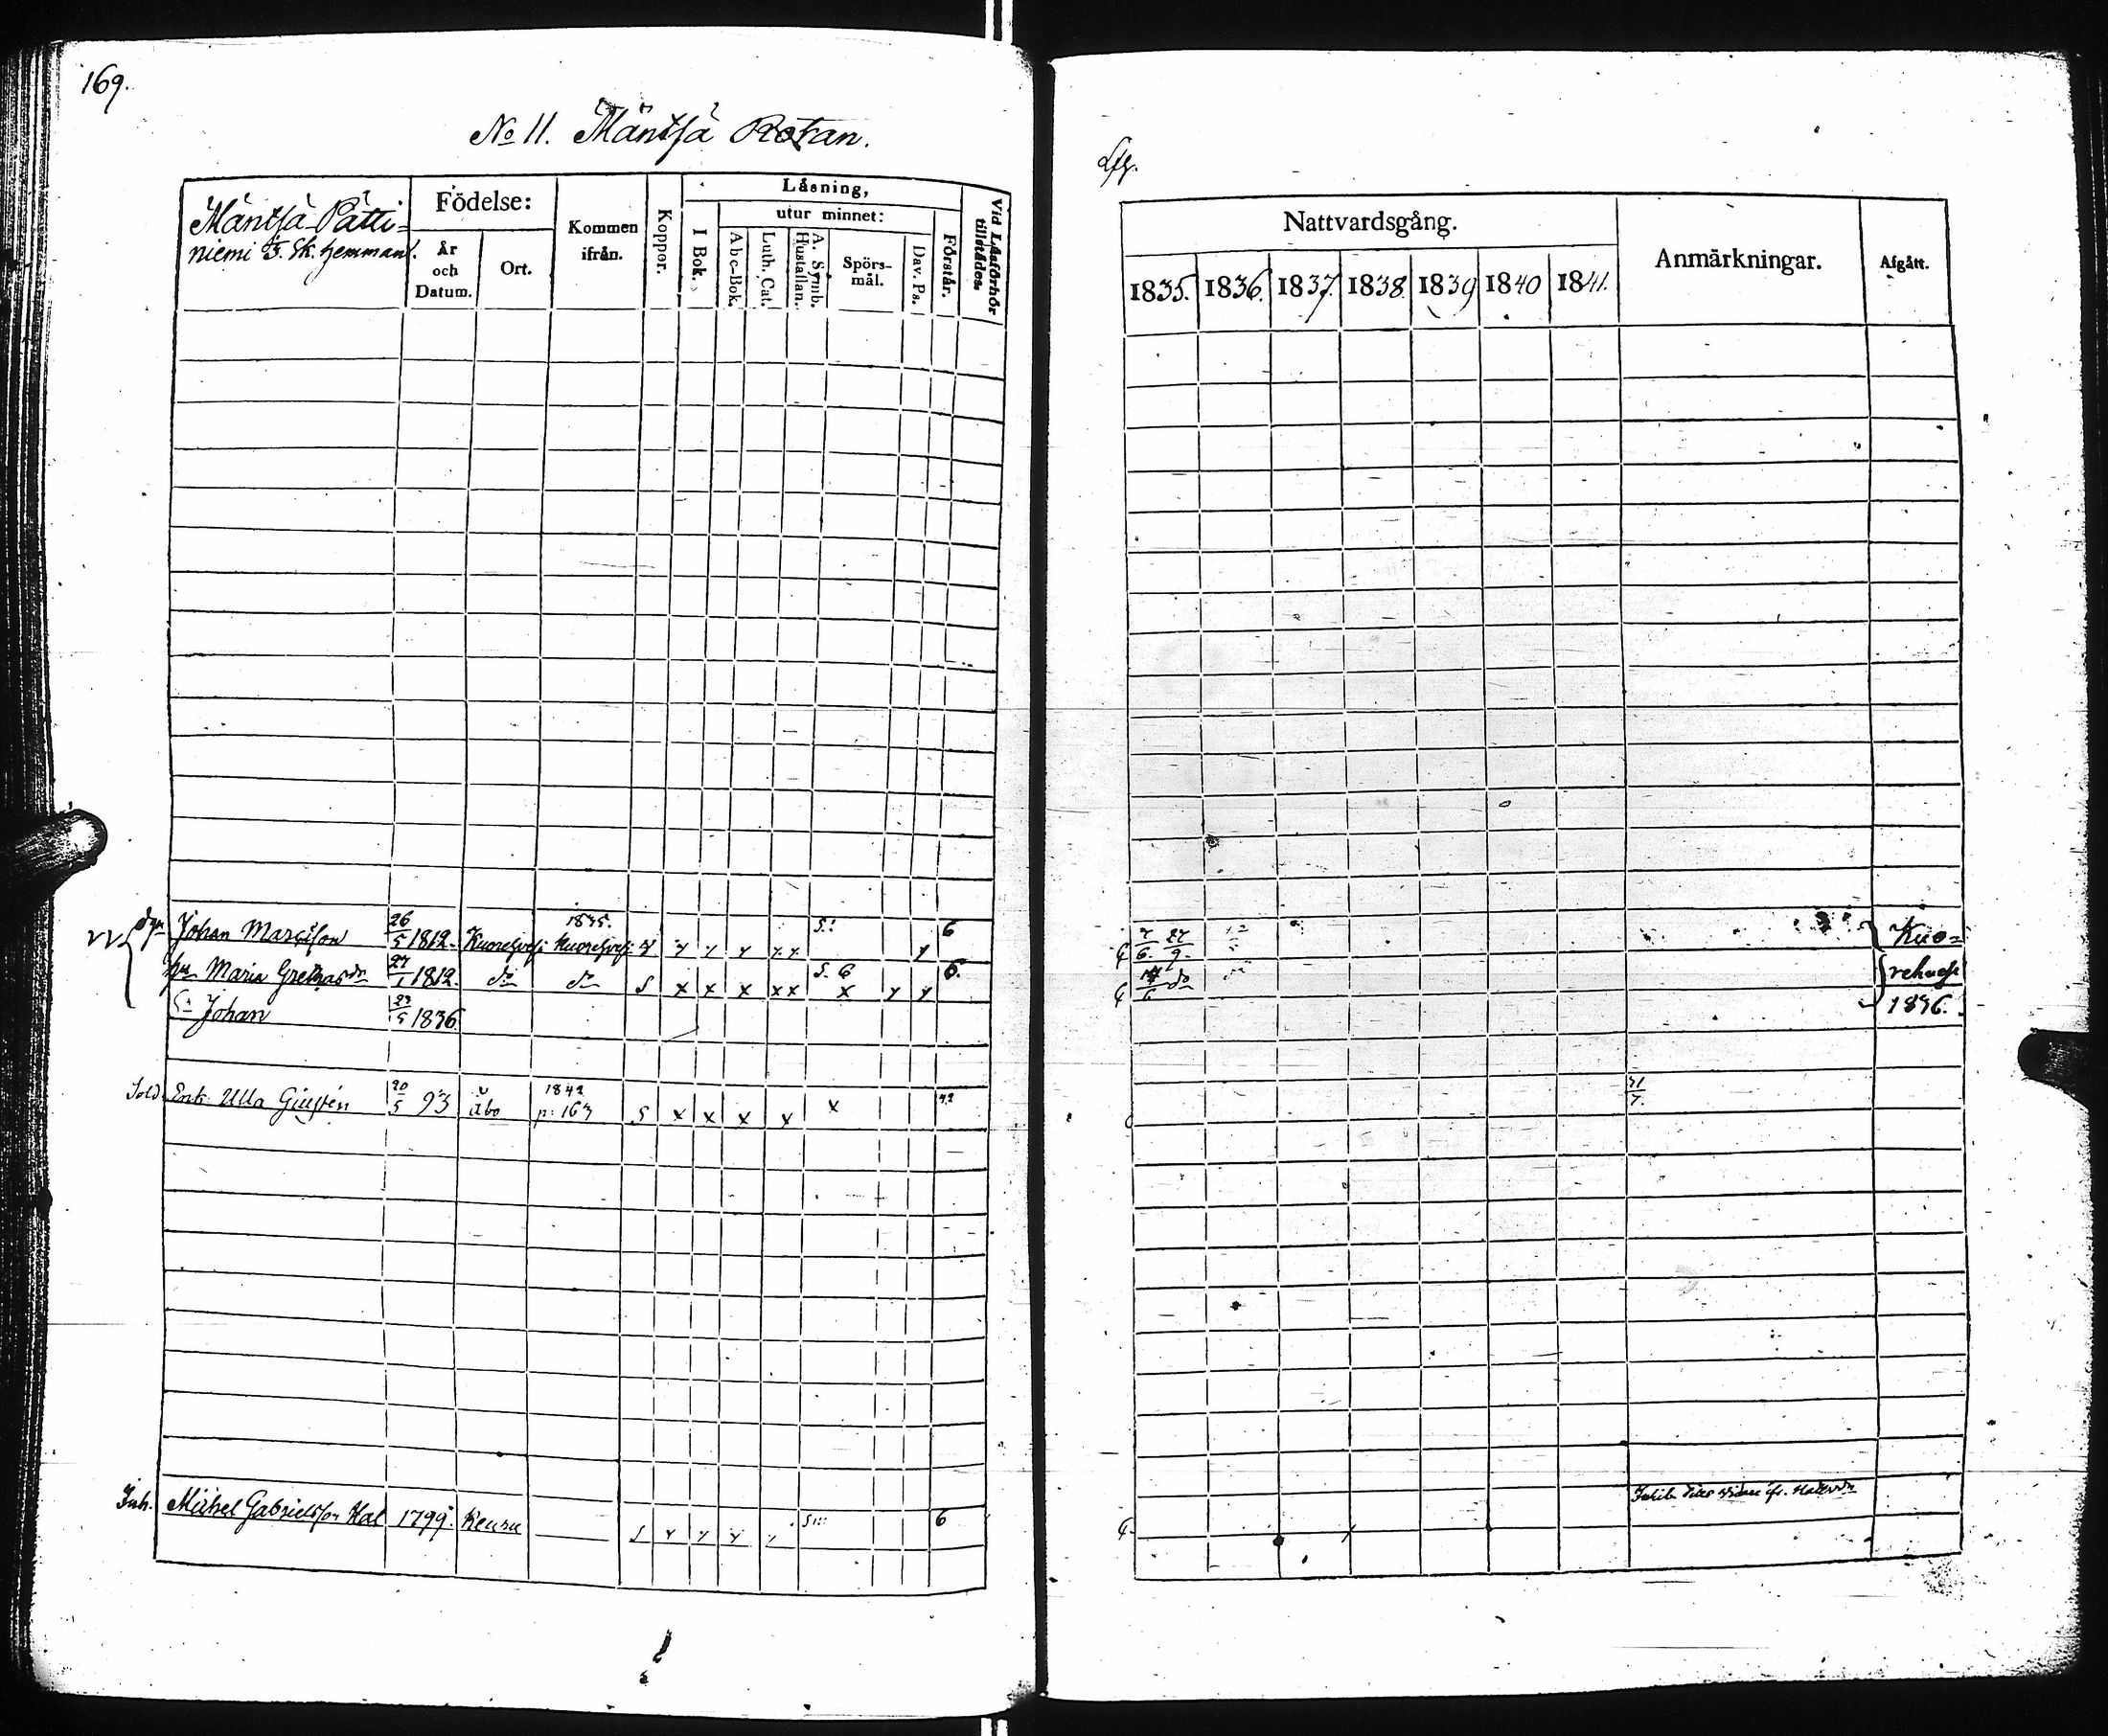 169.
No 11. Mäntsä Rotan.
Mäntsä Pätti=
niemi Sk. hemman.
Födelse:
År
och
Datum.
Ort.
Kommen
ifrån.
Koppor.
Läsning,
I Bok.
utur minnet:
Abc-Bok.
Luth. Cat.
A. Symb.
Hustaflan.
Spörs-
mål.
Dav. Ps.
Förstår.
Vid Läsförhör
tillstädes.
Johan Marcisson 26/5 1812. Kuorehvesi 1835. Kuorehvesi 6
hu Maria 27/1 1812. do do S x x x x x S. 6 x 6.
Sn Johan 23/5 1836
Sold. Enk. Ulla 20/5 93 Åbo 1842 p: 163 S x x x x x 42
Inh. Michel Gabrielsson 1799. Keuru S 6
Nattvardsgång.
1835. 1836. 1837. 1838. 1839 1840 1841.
Anmärkningar.
Afgått.
7/6. 27/9.
do
Kuo=
rehvesi
1836.
31/7.